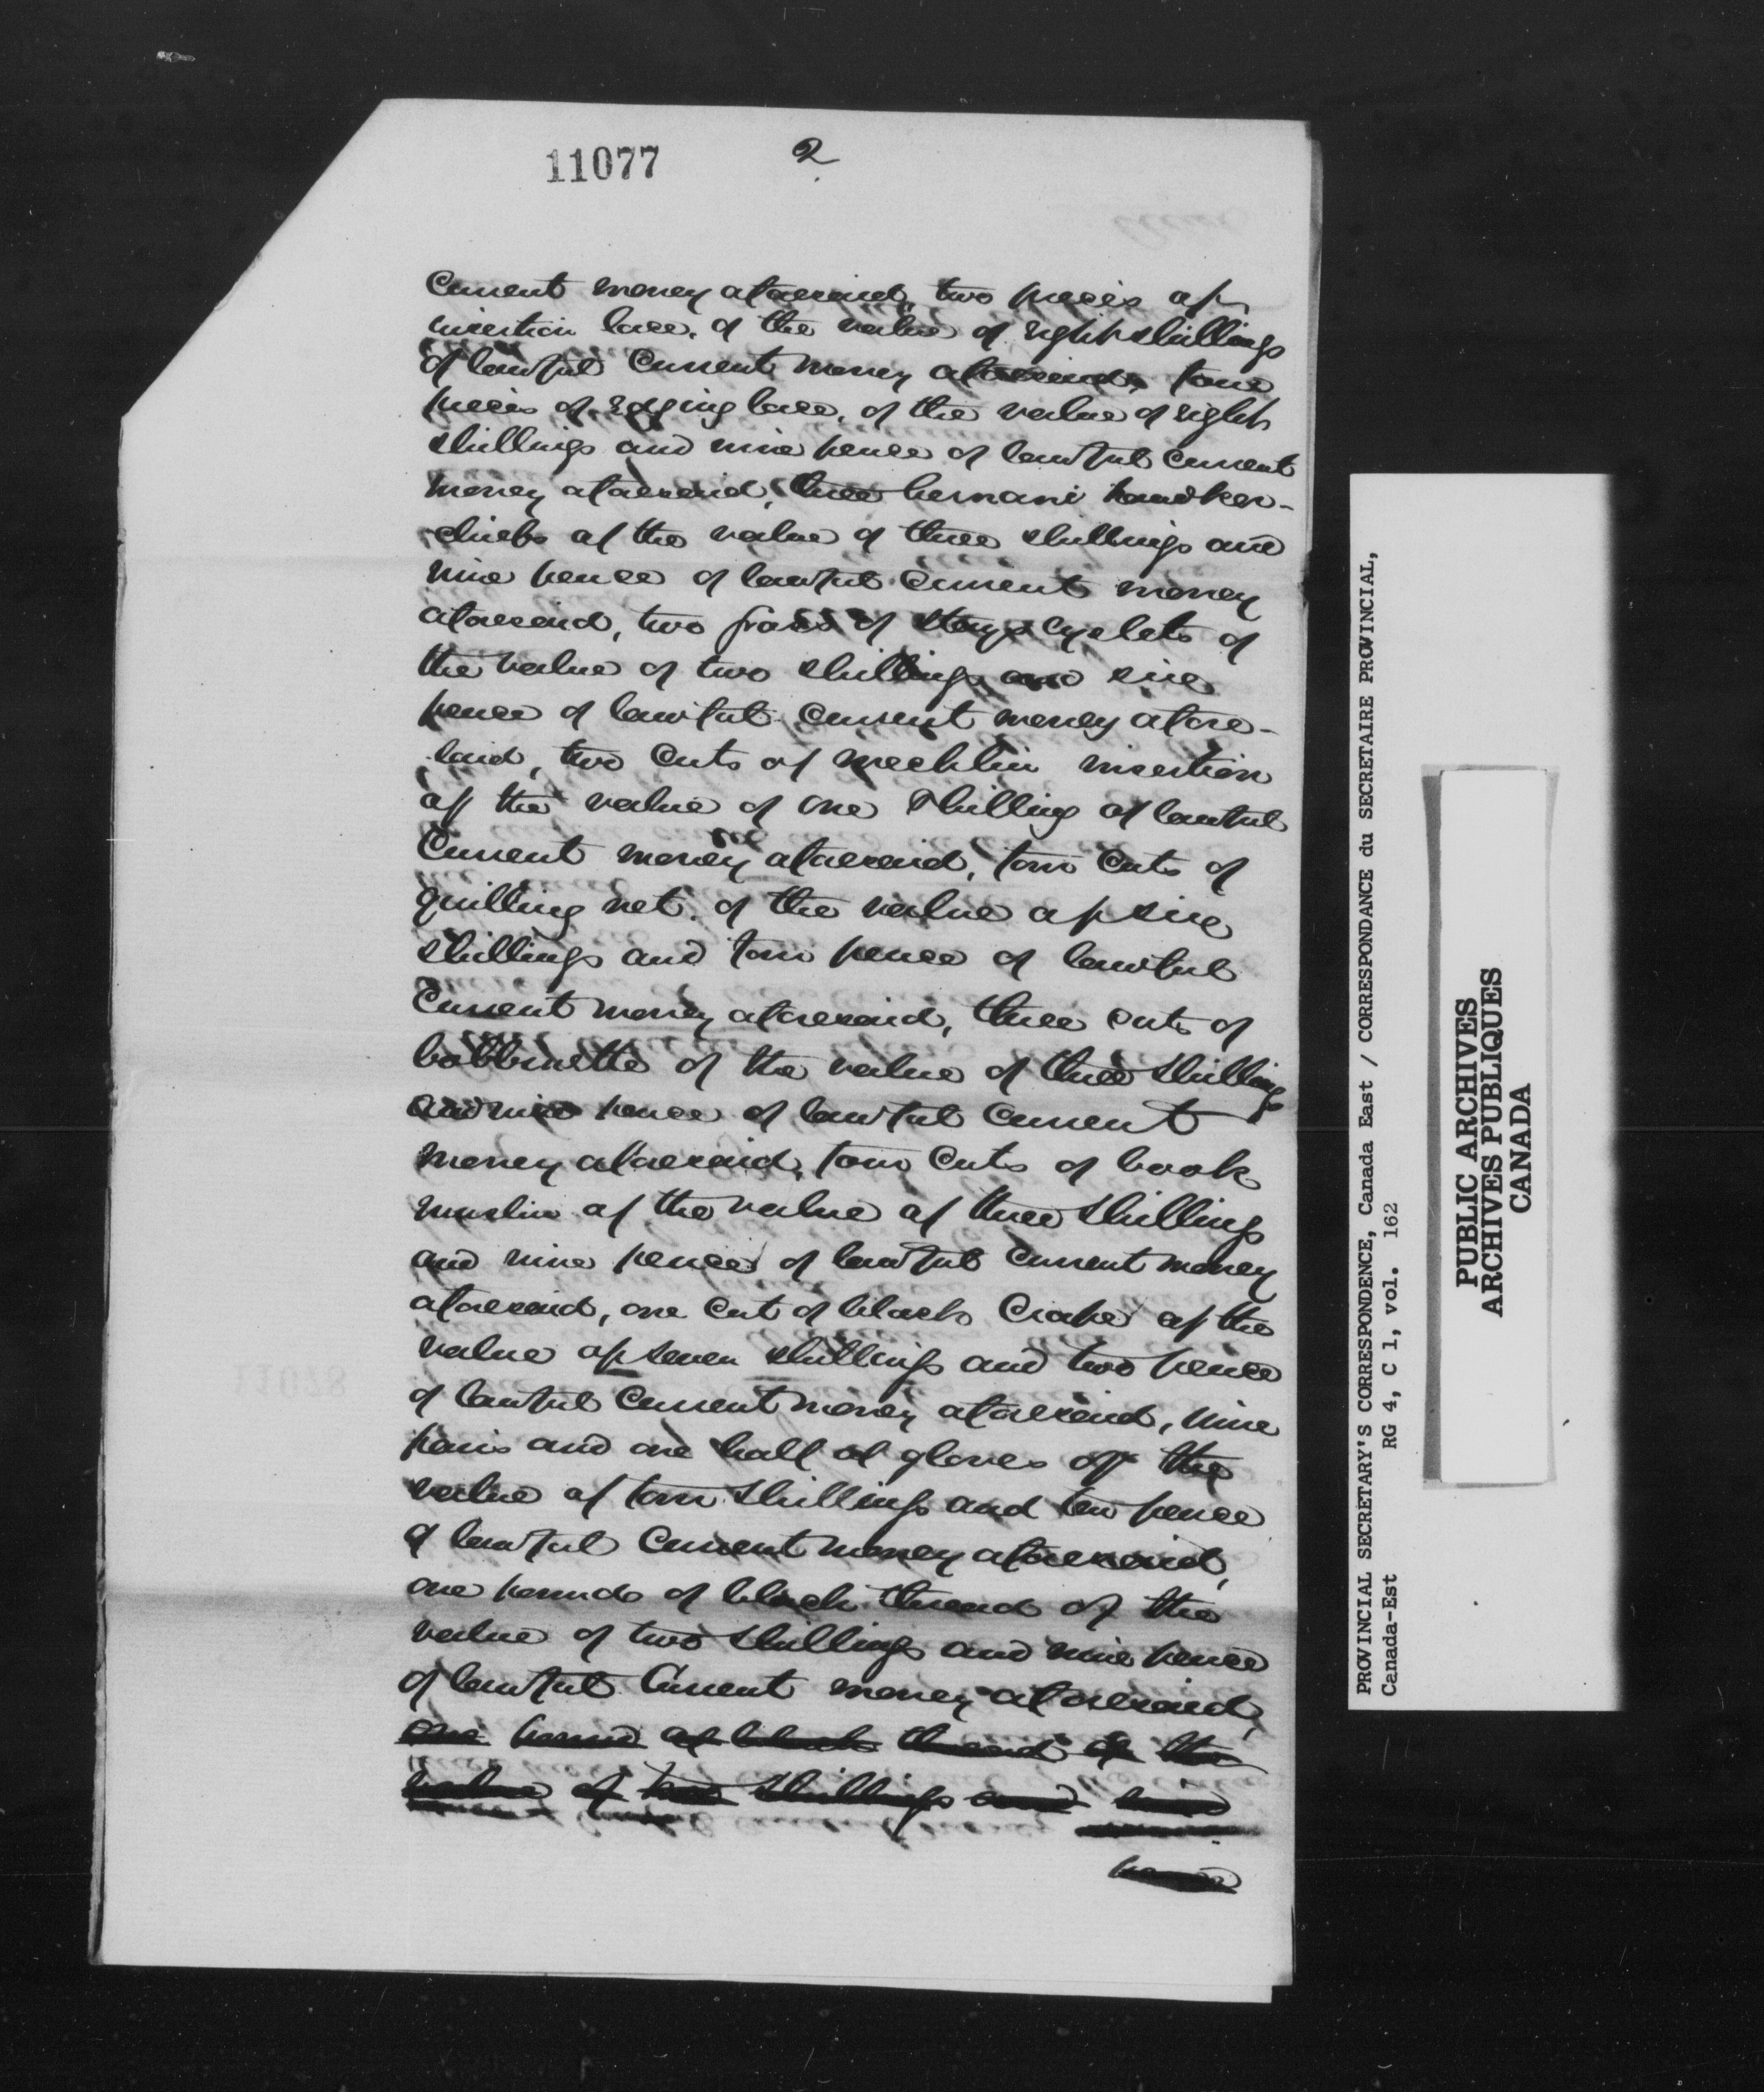 11077
2
Current money aforesaid, two pieces of
insertion lace, of the value of eight shillings
of lawful Current money aforesaid, four
pieces of edging lace, of the value of eight
shillings and nine pence of lawful Current
money aforesaid, three hernani handker-
chiefs of the value of three shillings and
nine pence of lawful Current money
aforesaid, two gross of stays eyelets of
the value of two shillings and six
pence of lawful Current money afore-
said, two Cuts of mechlin insertion
of the value of one Shilling of lawful
Current money aforesaid, four Cuts of
quilling net, of the value of six
shillings and four pence of lawful
Current money aforesaid, three Cuts of
bobbinette of the value of three Shillings
and nine pence of lawful Current
money aforesaid, four Cuts of book
muslin of the value of three Shillings
and nine pence of lawful Current money
aforesaid, one Cut of black Crape of the
value of seven shillings and two pence
of lawful Current money aforesaid, nine
pairs and one half of gloves of the
value of four Shillings and ten pence
of lawful Current money aforesaid,
one pound of black thread of the
value of two Shillings and nine pence
of lawful Current money aforesaid,
one pound of black thread of the
value of two Shillings and nine
pence
11078
PROVINCIAL SECRETARY'S CORRESPONDENCE, Canada East / CORRESPONDANCE du SECRETAIRE PROVINCIAL,
Canada-Est RG 4, C 1, vol. 162
PUBLIC ARCHIVES
ARCHIVES PUBLIQUES
CANADA